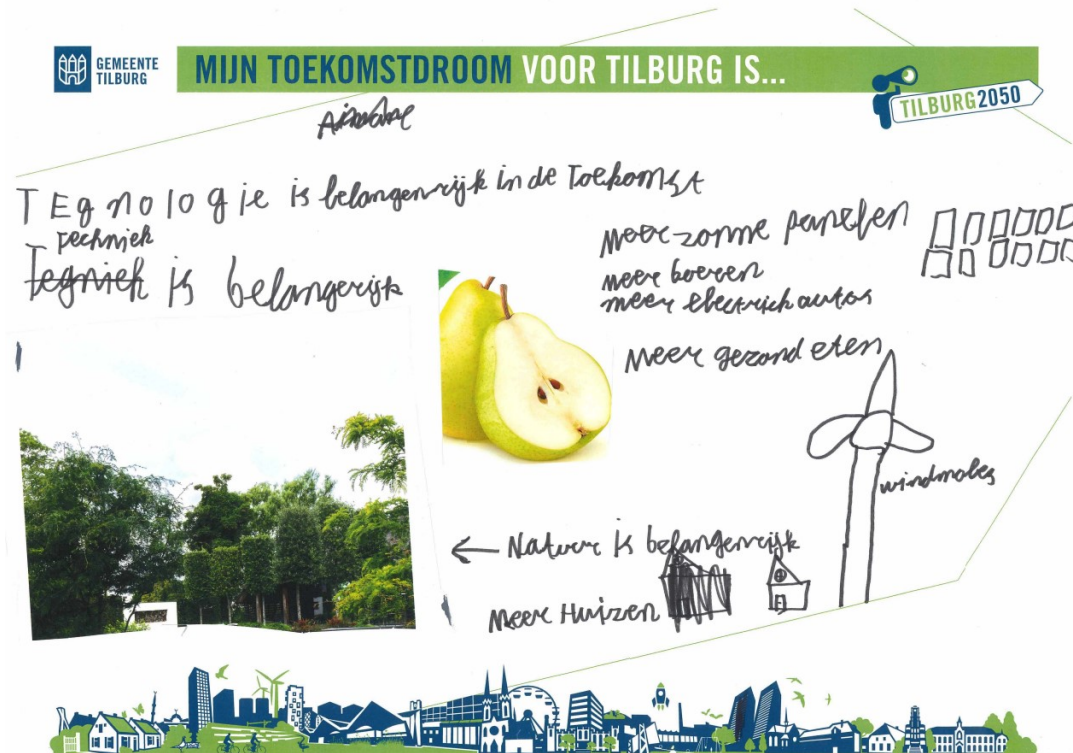 GEMEENTE
TILBURG
MIJN TOEKOMSTDROOM VOOR TILBURG IS...
TILBURG2050
TEgnologie is belangenrijk in de Toekomst
Techniek
Tegniek is belangerijk
meer zonne panelen
meer boeren
meer electrich autos
meer gezond eten
windmoles
← Natuur is belangenrijk
Meer Huizen